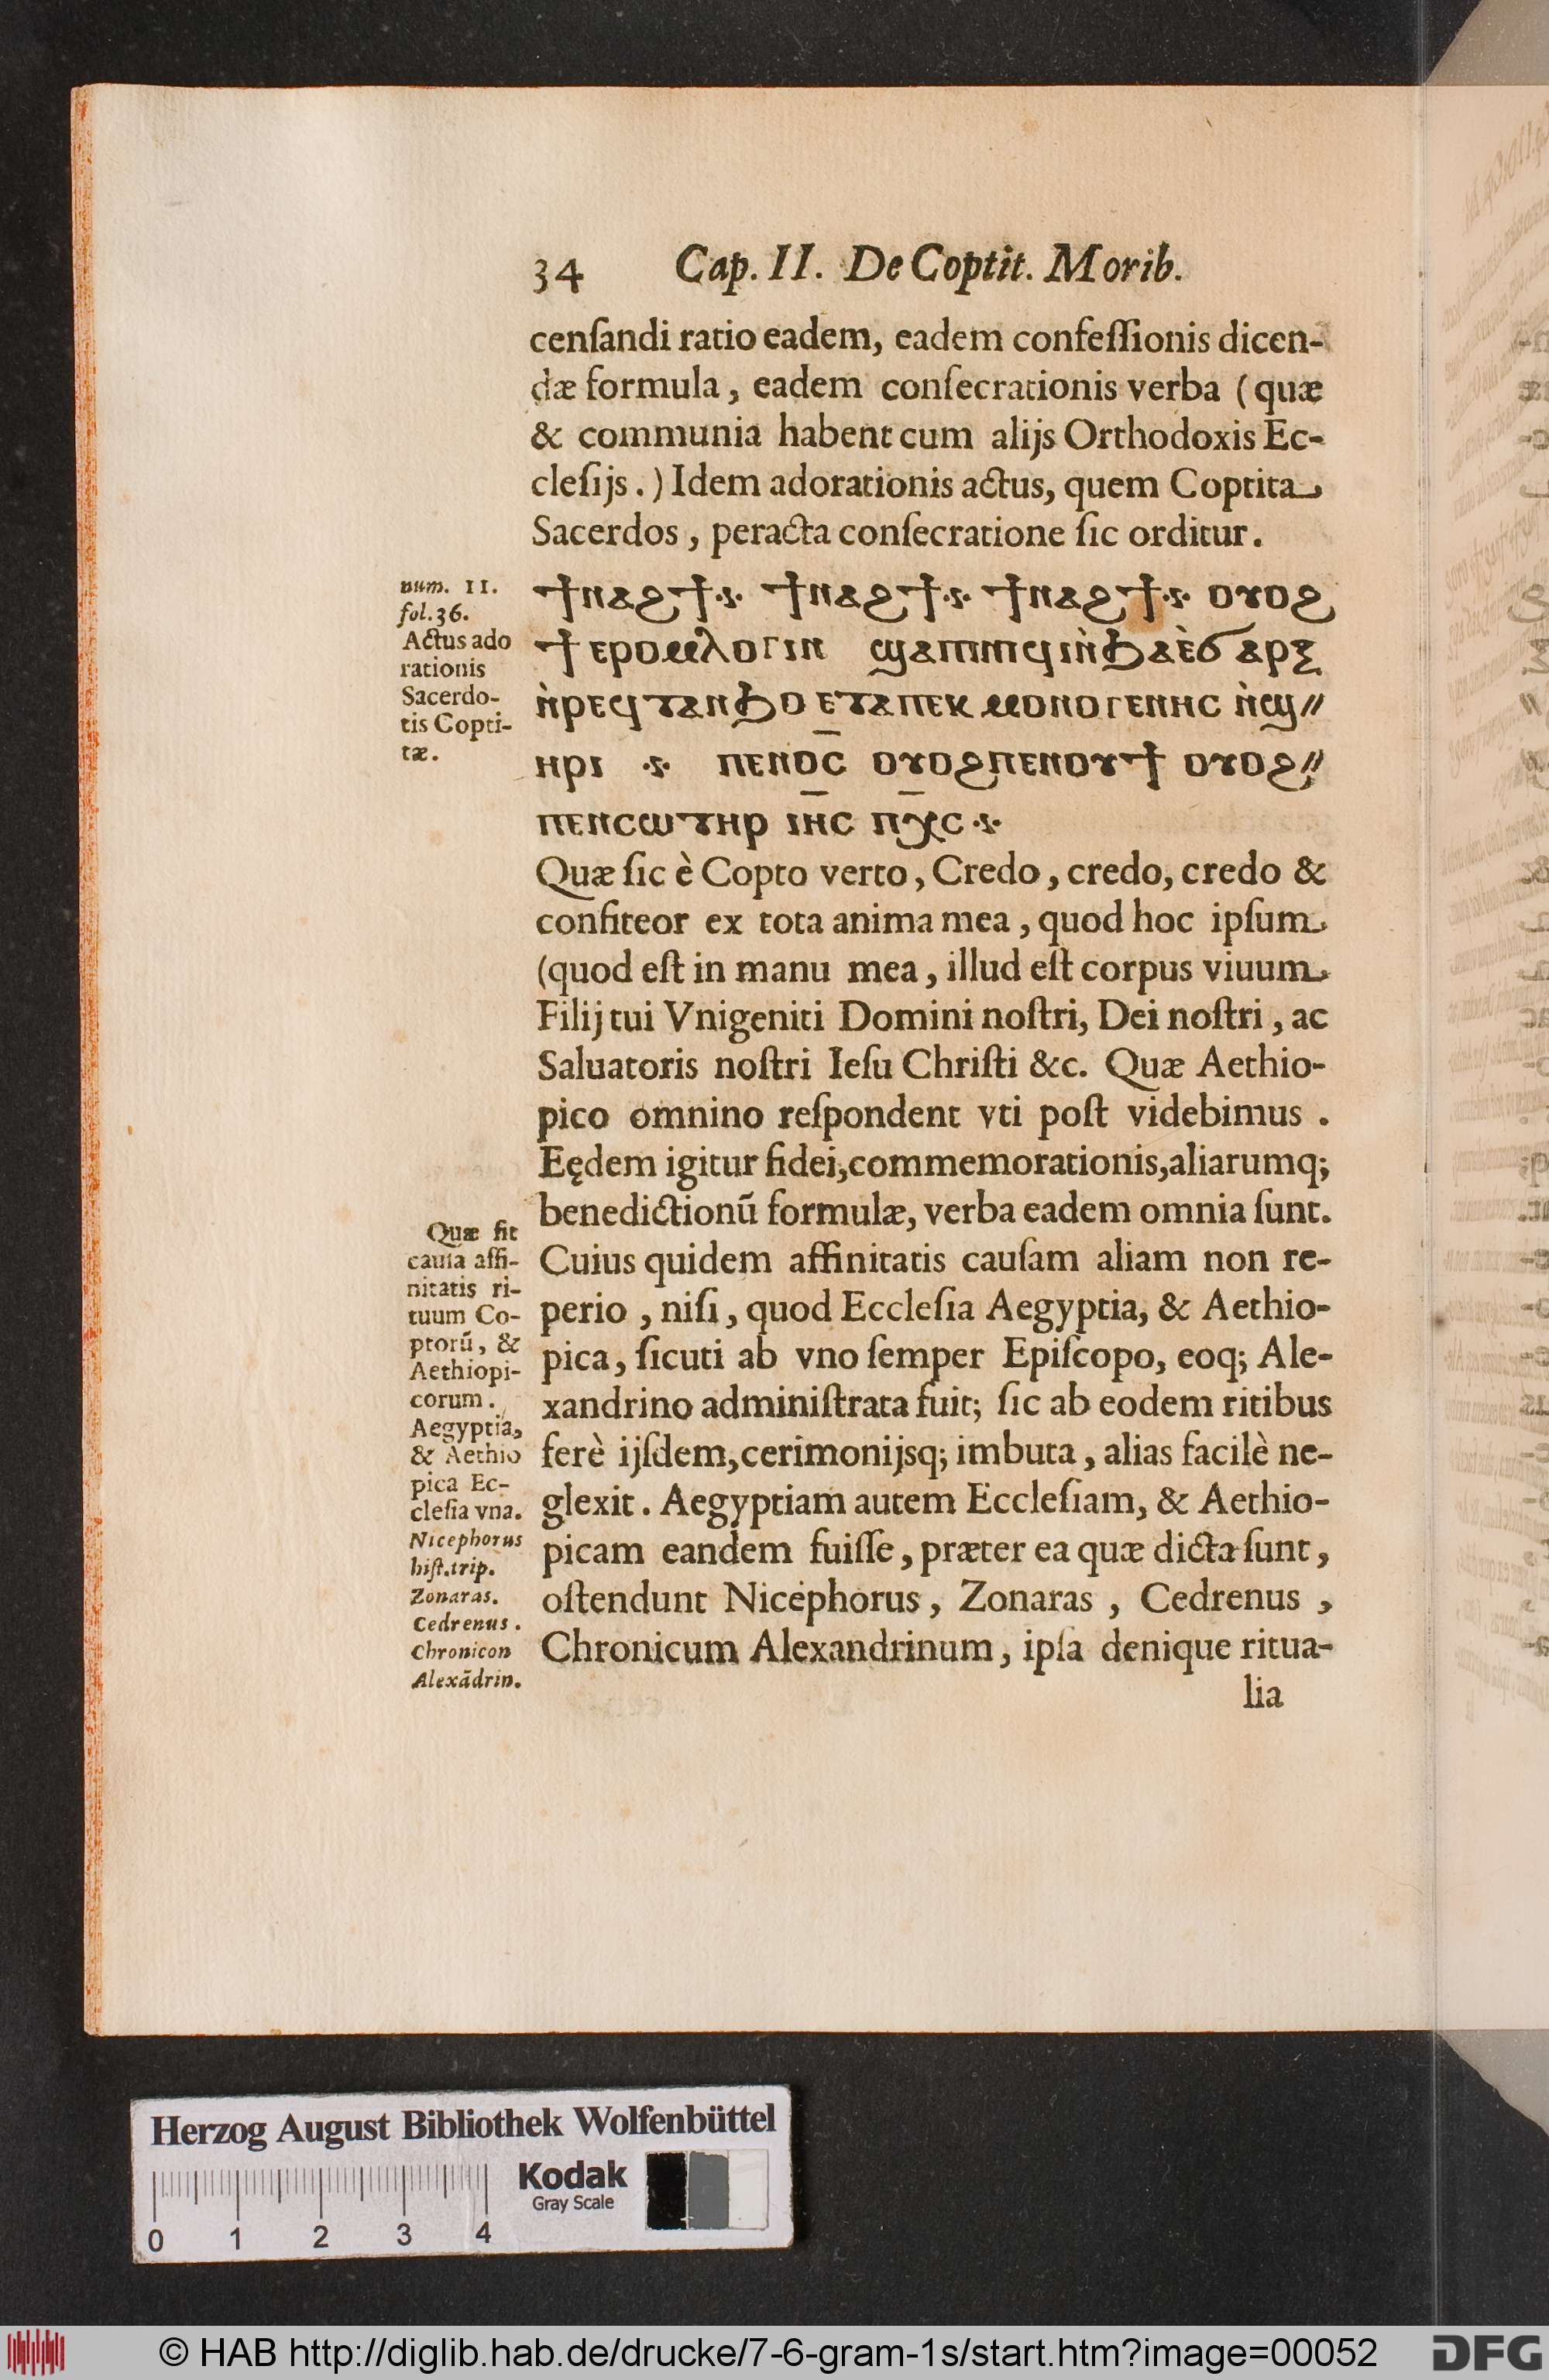 34 Cap. II. De Coptit. Morib.
cenſandi ratio eadem, eadem confeſſionis dicen-
dæ formula, eadem conſecrationis verba (quæ
& communia habent cum alijs Orthodoxis Ec-
cleſijs.) Idem adorationis actus, quem Coptita
Sacerdos, peracta conſecratione ſic orditur.
num. 11.
fol. 36.
Actus ado
rationis
Sacerdo-
tis Copti-
tæ.
ϯⲛⲁϩϯ·ⲋ· ϯⲛⲁϩϯ·ⲋ· ϯⲛⲁϩϯ·ⲋ· ⲟⲩⲟϩ
ϯⲉⲣⲟⲙⲗⲟⲅⲓⲛ
ⲛ̀ⲣⲉϥⲧⲁⲛϧⲟ ⲉⲧⲁⲡⲉⲕ ⲙⲟⲛⲟⲅⲉⲛⲏⲥ ⲛ̀ϣ//
ⲏⲣⲓ ·ⲋ· ⲡⲉⲛⲟ̅ⲥ ⲟⲩⲟϩⲡⲉⲛⲟⲩϯ ⲟⲩⲟϩ//
ⲡⲉⲛⲥⲱⲧⲏⲣ ⲓⲏ̅ⲥ ⲡⲭ̅ⲥ·ⲋ·
Quæ ſic è Copto verto, Credo, credo, credo &
confiteor ex tota anima mea, quod hoc ipſum
(quod eſt in manu mea, illud eſt corpus viuum
Filij tui Vnigeniti Domini noſtri, Dei noſtri, ac
Saluatoris noſtri Ieſu Chriſti &c. Quæ Aethio-
pico omnino reſpondent vti poſt videbimus.
Eędem igitur fidei, commemorationis, aliarumq;
benedictionũ formulæ, verba eadem omnia ſunt.
Cuius quidem affinitatis cauſam aliam non re-
perio, niſi, quod Eccleſia Aegyptia, & Aethio-
pica, ſicuti ab vno ſemper Epiſcopo, eoq; Ale-
xandrino adminiſtrata fuit; ſic ab eodem ritibus
ferè ijſdem, cerimonijsq; imbuta, alias facilè ne-
glexit. Aegyptiam autem Eccleſiam, & Aethio-
picam eandem fuiſſe, præter ea quæ dicta ſunt,
oſtendunt Nicephorus, Zonaras, Cedrenus,
Chronicum Alexandrinum, ipſa denique ritua-
lia
Quæ ſit
cauſa affi-
nitatis ri-
tuum Co-
ptorũ, &
Aethiopi-
corum.
Aegyptia,
& Aethio
pica Ec-
cleſia vna.
Nicephorus
hiſt. trip.
Zonaras.
Cedrenus.
Chronicon
Alexãdrin.
Herzog August Bibliothek Wolfenbüttel
Kodak
Gray Scale
0 1 2 3 4
© HAB http://diglib.hab.de/drucke/7-6-gram-1s/start.htm?image=00052
DFG